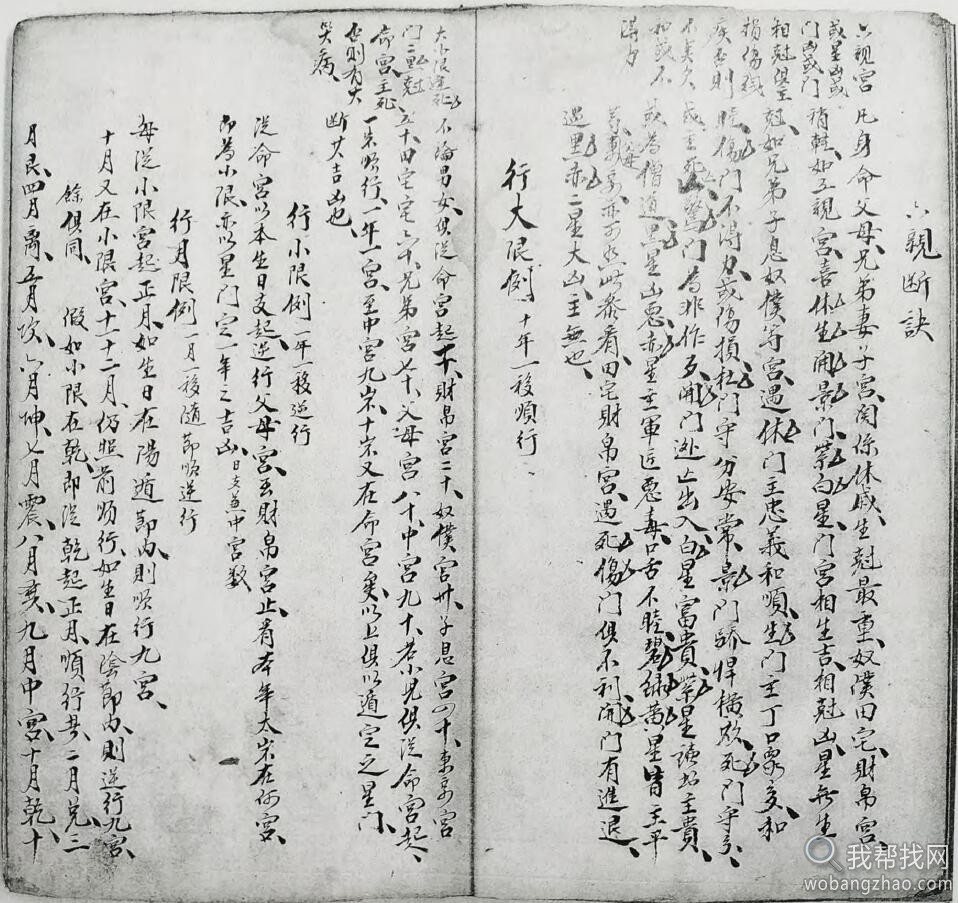 六親断訣
六親宮 凡身命父母兄弟妻子宮関係休戚生尅最重奴僕田宅財帛宮
或星凶或門凶或門 稍軽如五親宮喜休生開景門紫白星門宮相生吉相尅凶星無生
相尅俱主損傷残 尅如兄弟子息奴僕等宮遇休門主忠義和順生門主丁口衆多和
疾否則 睦傷門不得力或傷損杜門守分安常景門驕悍横敗死門守分
不矣久 或主死驚門為非作歹開門逃亡出入白星富貴紫星読書主貴
和或不 或為僧道黒星凶悪赤星主軍匠悪毒口舌不睦碧綠黄星皆主平
得力 等父母妻亦可照此参看田宅財帛宮遇死傷門俱不利開門有進退
遇黒赤二星大凶主無也
行大限例 十年一移順行
大小限逢死門二
命宮主死
否則有大
哭病
不論男女俱從命宮起一十財帛宮二十奴僕宮卅子息宮四十妻妾宮
五十田宅宮六十兄弟宮七十父母宮八十中宮九十若小児俱從命宮起
一歳順行一年一宮至中宮九歳十歳又在命宮矣以上俱以遁定之星門
断其吉凶也
行小限例 一年一移逆行
從命宮以本生日支起逆行父母宮至財帛宮止看本年太歳在何宮
即為小限亦以星門定一年之吉凶 日支並中宮数
行月限例 一月一移随節順逆行
每從小限宮起正月如生日在陽遁節内則順行九宮
十月又在小限宮十一十二月仍照前順行如生日在陰節内則逆行九宮
餘俱同 假如小限在乾即從乾起正月順行其二月兌三
月艮四月離五月坎六月坤七月震八月巽九月中宮十月乾十
我帮找网
wobangzhao.com